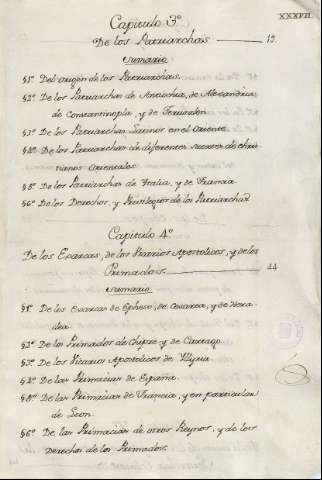 XXXVII
Capitulo 3º
De los Patriarchas 12
Sumario
§1º Del origen de los Patriarchas.
§2º De los Patriarchas de Antiochia, de Alexandria
de Constantinopla, y de Jerusalen
§3º De los Patriarchas Latinos en el Oriente
§4º De los Patriarchas de diferentes sectas de chris-
tianos orientales
§5º De los Patriarchas de Italia, y de Francia
§6º De los Derechos, y Privilegios de los Patriarchas
Capitulo 4º
De los Exarcas, de los Vicarios Apostolicos, y de los
Primados 44
Sumario
§1º De los Exarcas de Epheso, de Cesarea, y de Hera-
clea
§2º De los Primados de Chipre, y de Cartago
§3º De los Vicarios Apostolicos de Illyria
§4º De las Primacias de España.
§5º De las Primacias de Francia, y en particular
de Leon.
§6º De las Primacias de otros Reynos, y de los
Derechos de los Primados.